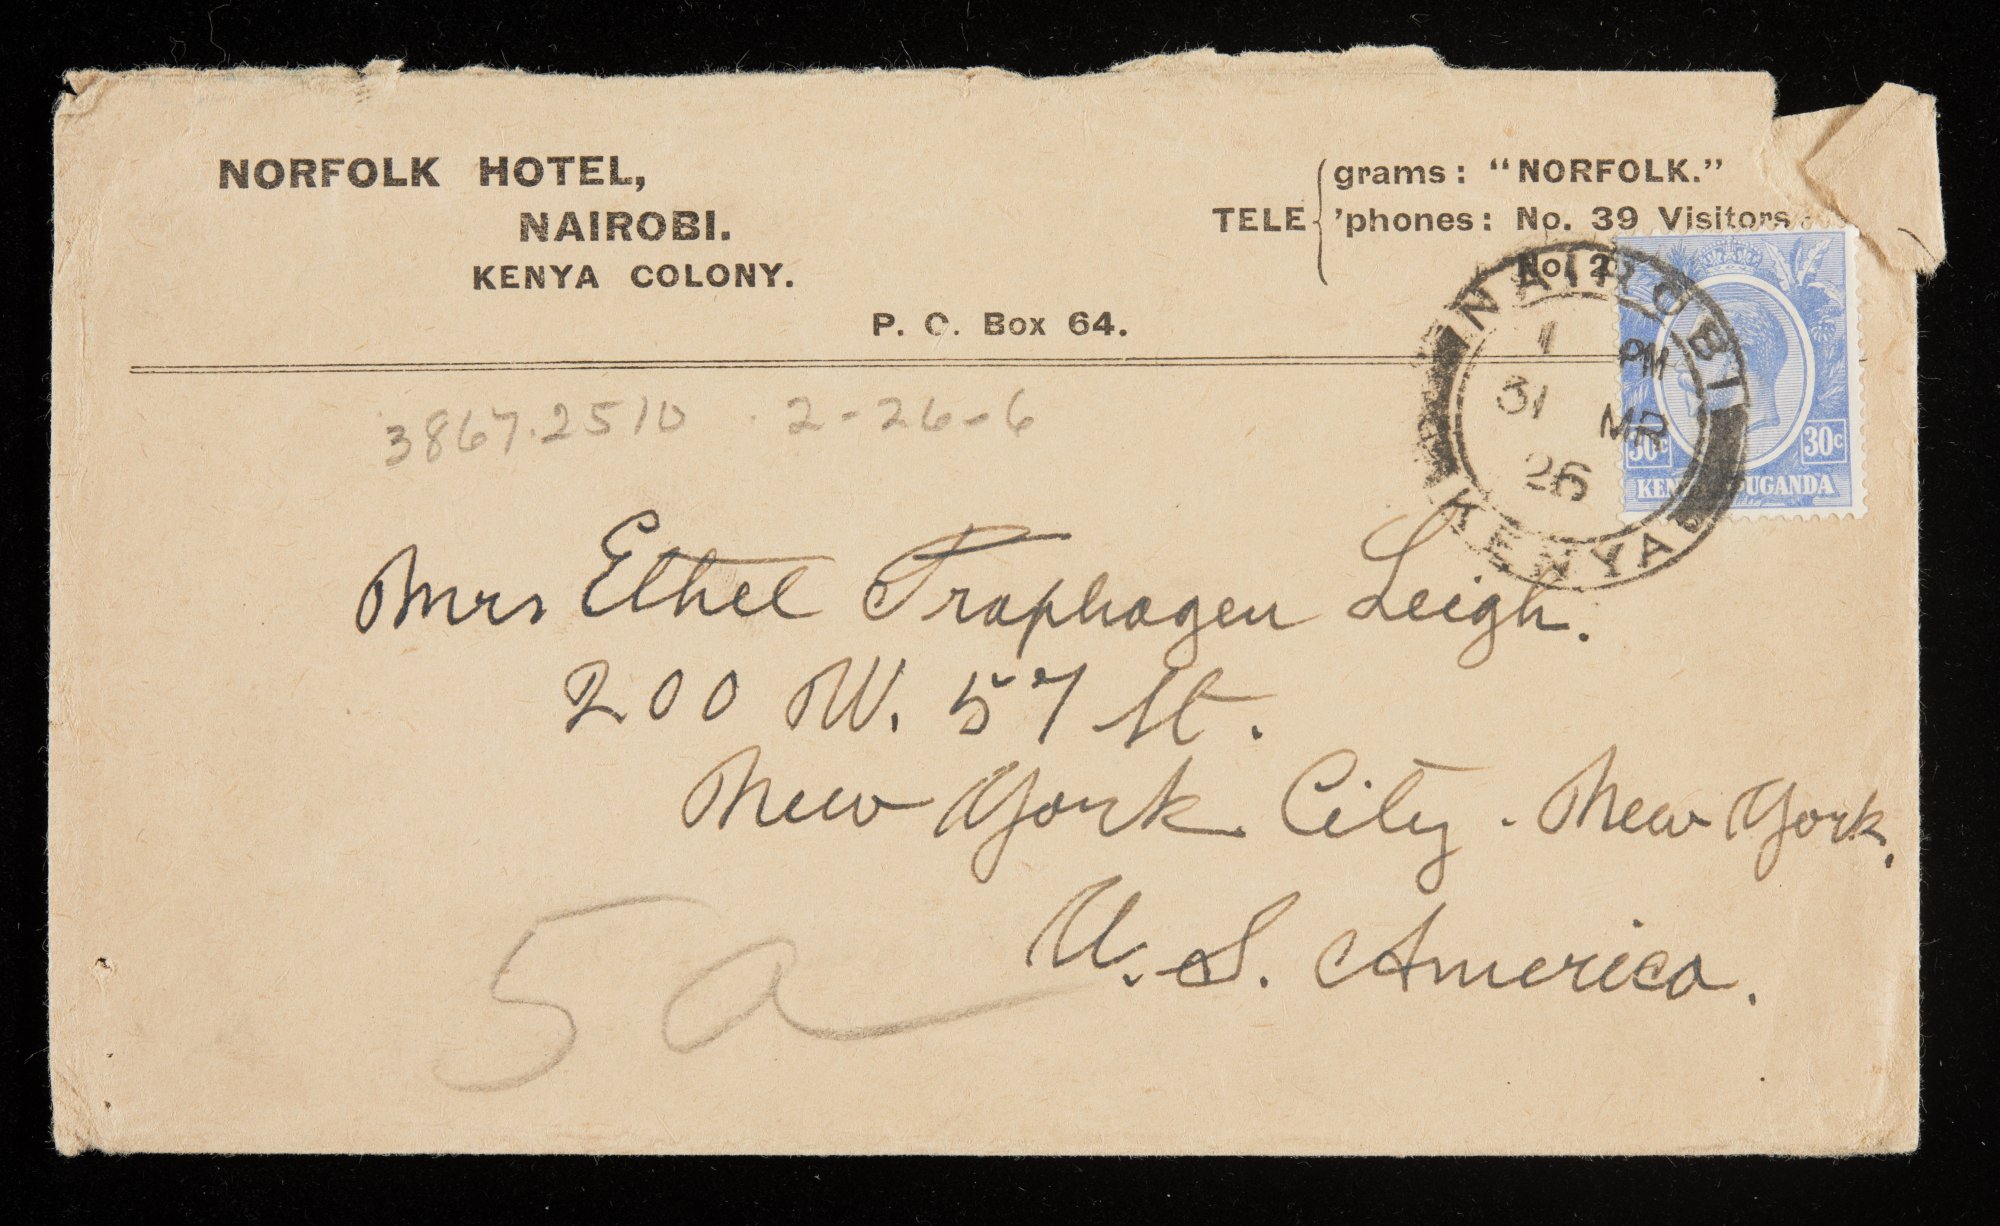 NORFOLK HOTEL,
NAIROBI.
KENYA COLONY.
P. O. Box 64.
TELE
grams: "NORFOLK."
'phones: No. 39 Visitors
No. 2
NAIROBI
1 PM
31 MR
26
KENYA
30c 30c
KENYA UGANDA
3867.2510 . 2-26-6
Mrs Ethel Traphagen Leigh.
200 W. 57 St.
New York City. New York.
U. S. America.
5a